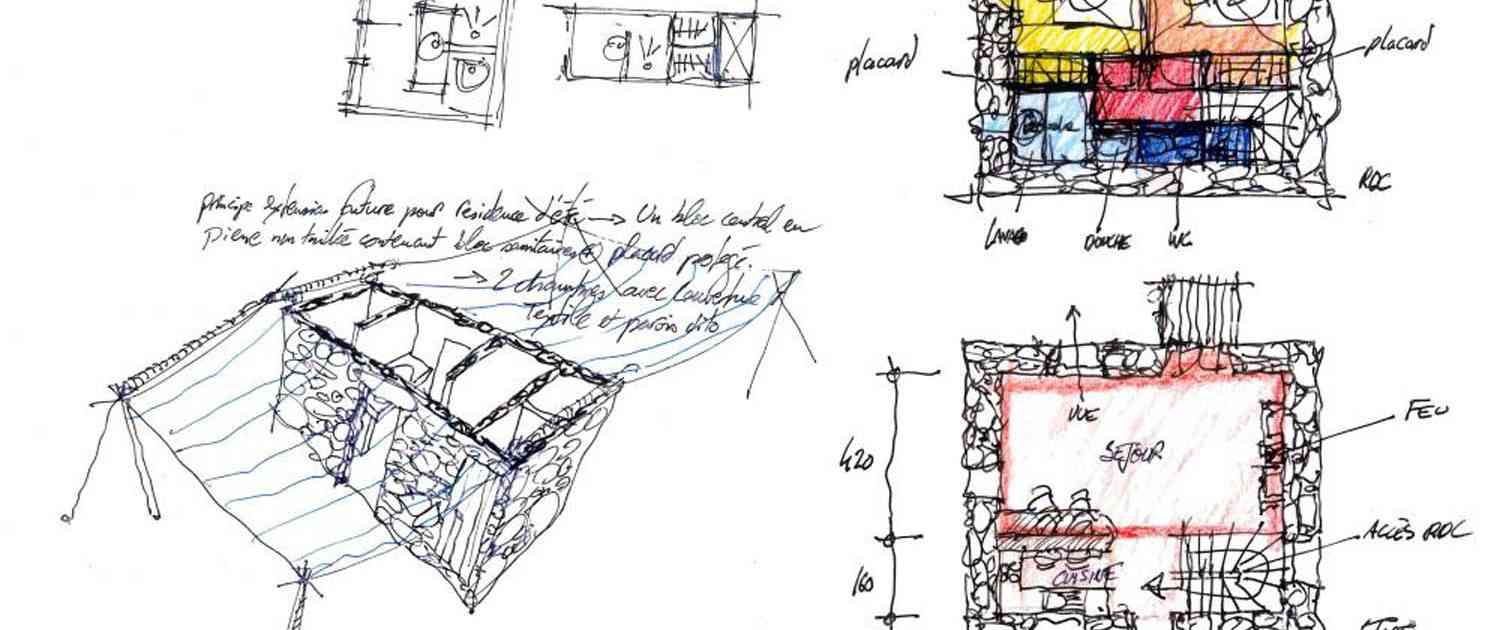 placard
placard
RDC
LAVABO
DOUCHE
WC
principe extension future pour residence d'été → Un bloc central en
pierre non taillée contenant bloc sanitaires + placard protégé.
→ 2 chambres avec couverture
Textile et parois dito
VUE
SEJOUR
FEU
420
ACCÈS RDC
160
CUISINE